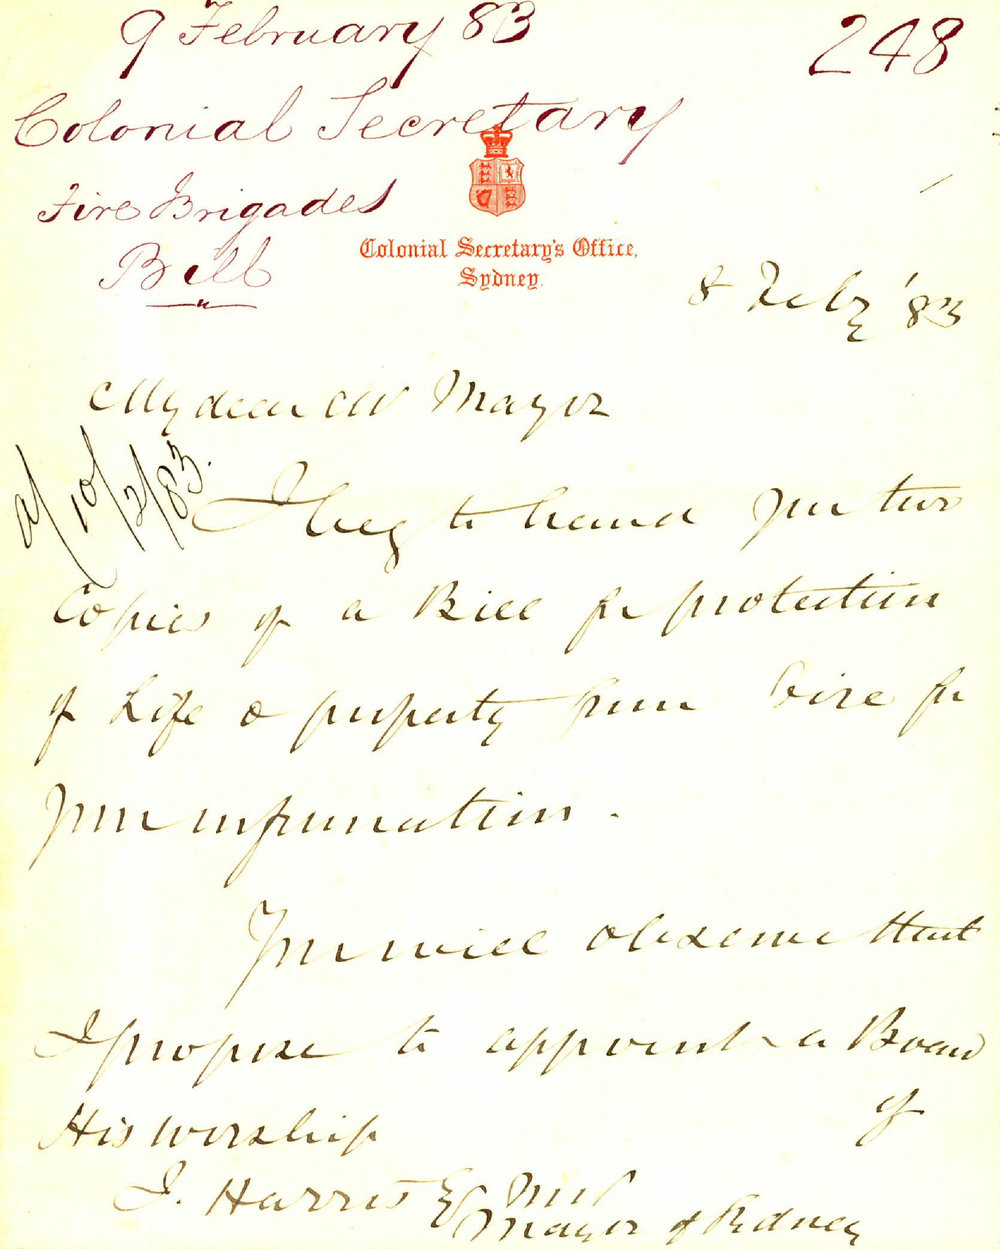 9 February 83
248
Colonial Secretary
Fire Brigades
Bill
Colonial Secretary's Office,
Sydney.
8 Feby '83
My dear Mr Mayor
a/ 10/2/83.
I beg to hand you two
Copies of a Bill for protection
of Life & property from Fire for
your information.
You will observe that
I propose to appoint a Board
of
His Worship
J. Harris Esq MP
Mayor of Sydney